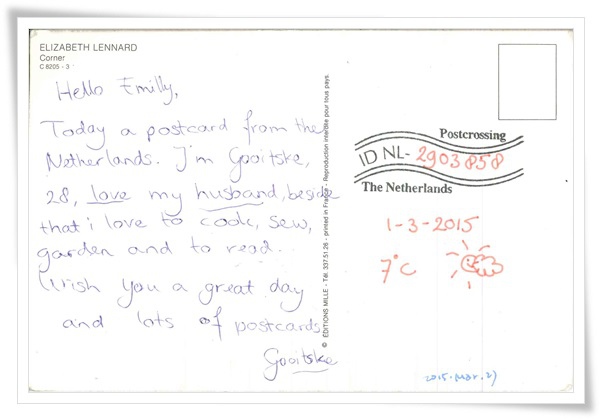 ELIZABETH LENNARD
Corner
C 8205 - 3
Hello Emilly,
Today a postcard from the
Netherlands. I'm Gooitske,
28, love my husband, beside
that i love to cook, sew,
garden and to read..
Wish you a great day
and lots of postcards
Gooitske
© ÉDITIONS MILLE - Tél. 337.51.26 - printed in France - Reproduction interdite pour tous pays.
Postcrossing
ID NL- 2903858
The Netherlands
1-3-2015
7°C
2015.(Mar.2)